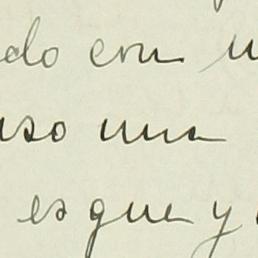 do con
uso una
es que y